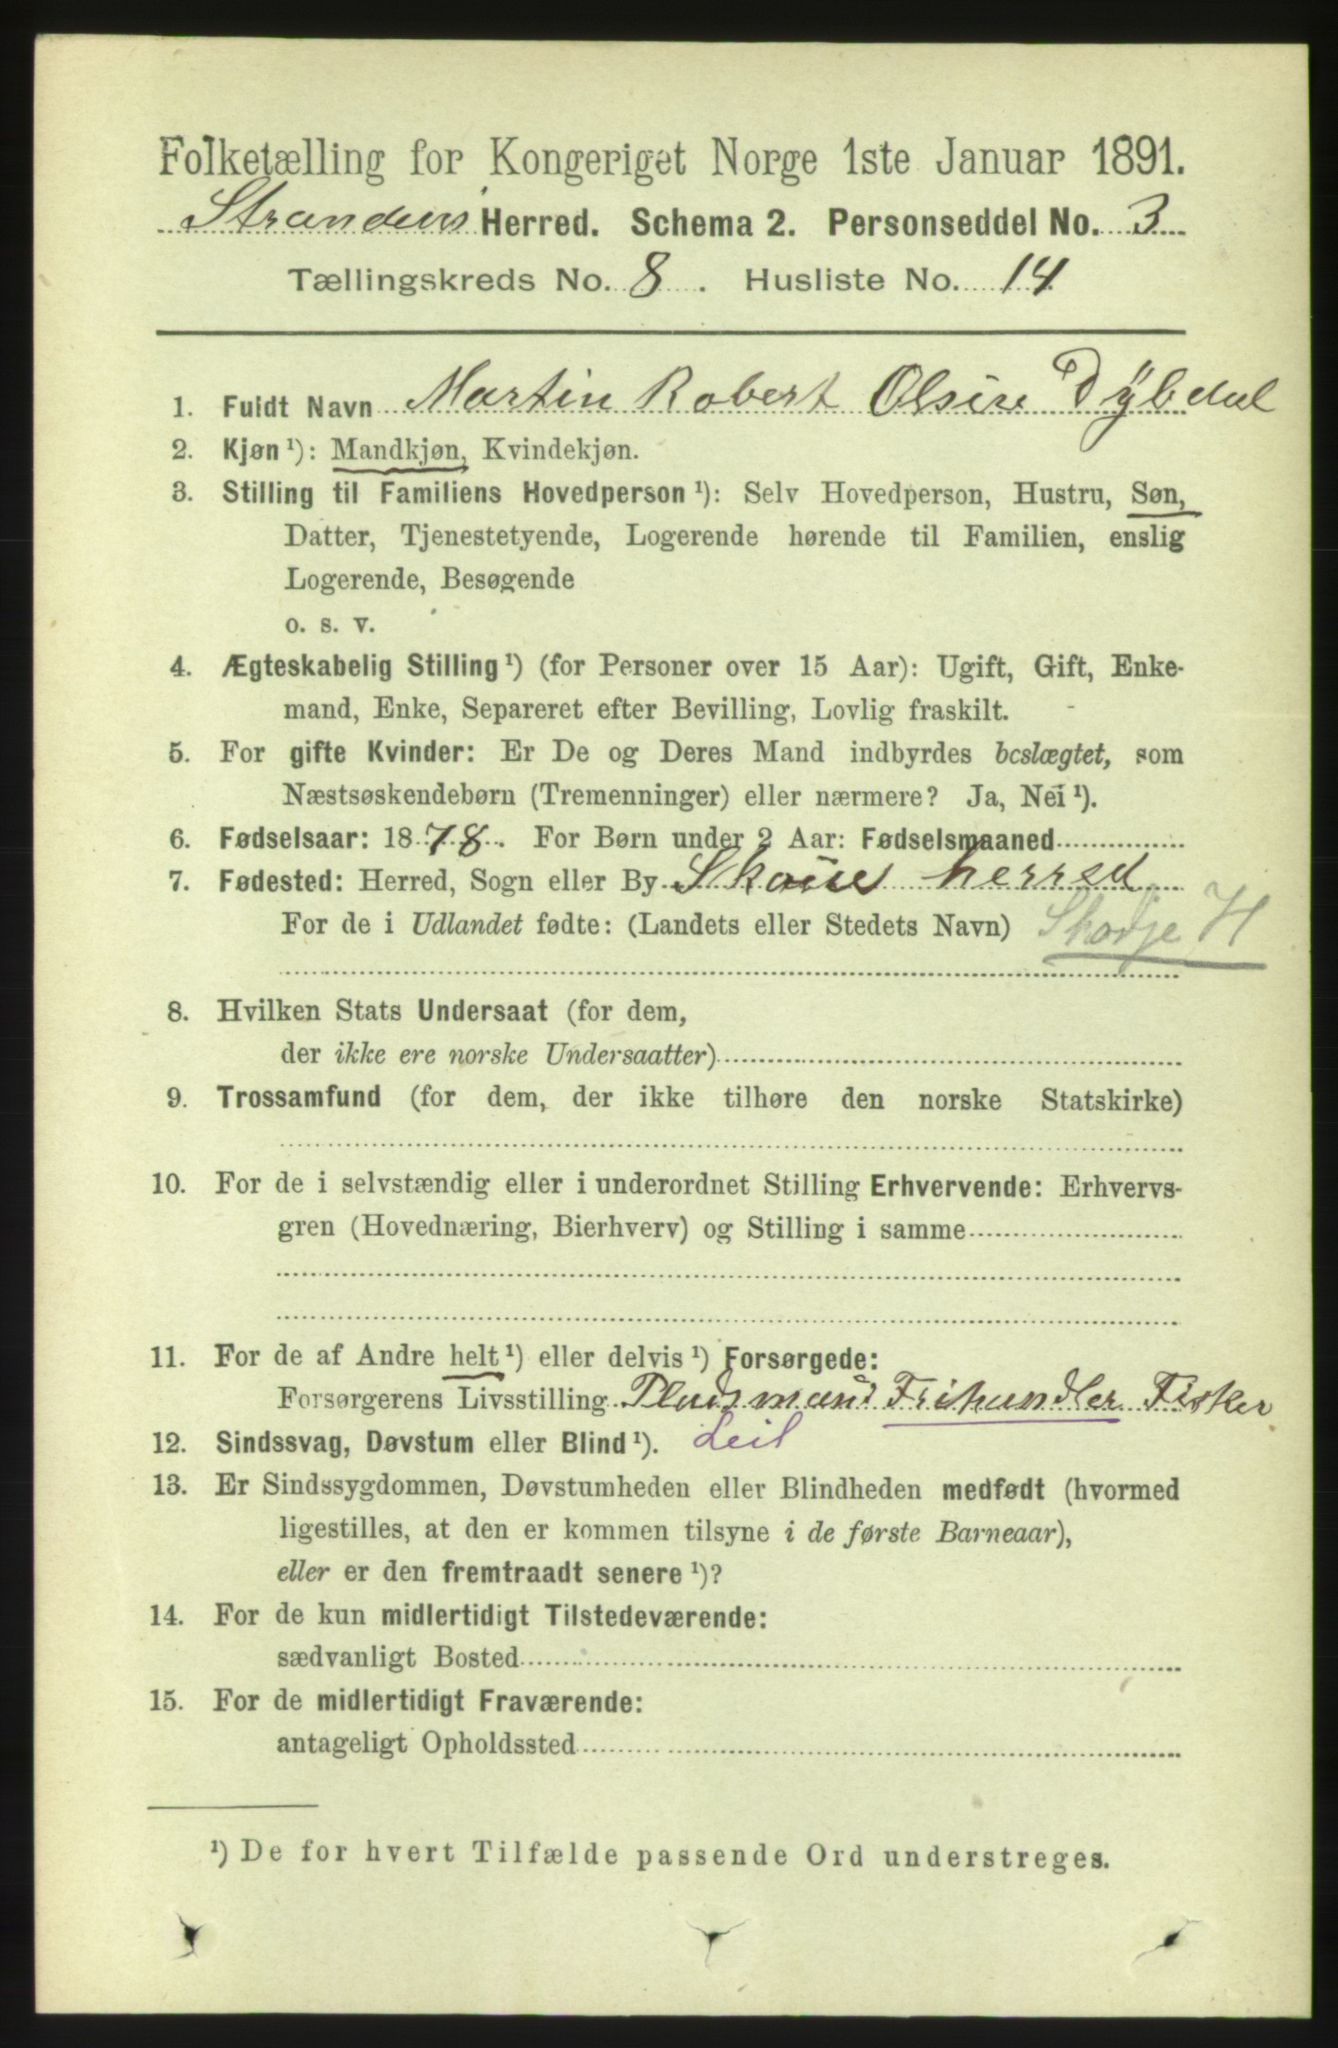 Folketælling for Kongeriget Norge 1ste Januar 1891.
Strandens Herred. Schema 2. Personseddel No. 3
Tællingskreds No. 8. Husliste No. 14
1. Fuldt Navn Martin Robert Olsen Dybdal
2. Kjøn ¹): Mandkjøn, Kvindekjøn.
3. Stilling til Familiens Hovedperson ¹): Selv Hovedperson, Hustru, Søn,
Datter, Tjenestetyende, Logerende hørende til Familien, enslig
Logerende, Besøgende
o. s. v.
4. Ægteskabelig Stilling ¹) (for Personer over 15 Aar): Ugift, Gift, Enke-
mand, Enke, Separeret efter Bevilling, Lovlig fraskilt.
5. For gifte Kvinder: Er De og Deres Mand indbyrdes beslægtet, som
Næstsøskendebørn (Tremenninger) eller nærmere? Ja, Nei ¹).
6. Fødselsaar: 1878. For Børn under 2 Aar: Fødselsmaaned
7. Fødested: Herred, Sogn eller By herred
For de i Udlandet fødte: (Landets eller Stedets Navn) Skodje H
8. Hvilken Stats Undersaat (for dem,
der ikke ere norske Undersaatter)
9. Trossamfund (for dem, der ikke tilhøre den norske Statskirke)
10. For de i selvstændig eller i underordnet Stilling Erhvervende: Erhvervs-
gren (Hovednæring, Bierhverv) og Stilling i samme
11. For de af Andre helt ¹) eller delvis ¹) Forsørgede:
Forsørgerens Livsstilling Pladsmand Frihandler Fisker
12. Sindssvag, Døvstum eller Blind ¹). Leil
13. Er Sindssygdommen, Døvstumheden eller Blindheden medfødt (hvormed
ligestilles, at den er kommen tilsyne i de første Barneaar),
eller er den fremtraadt senere ¹)?
14. For de kun midlertidigt Tilstedeværende:
sædvanligt Bosted
15. For de midlertidigt Fraværende:
antageligt Opholdssted
¹) De for hvert Tilfælde passende Ord understreges.